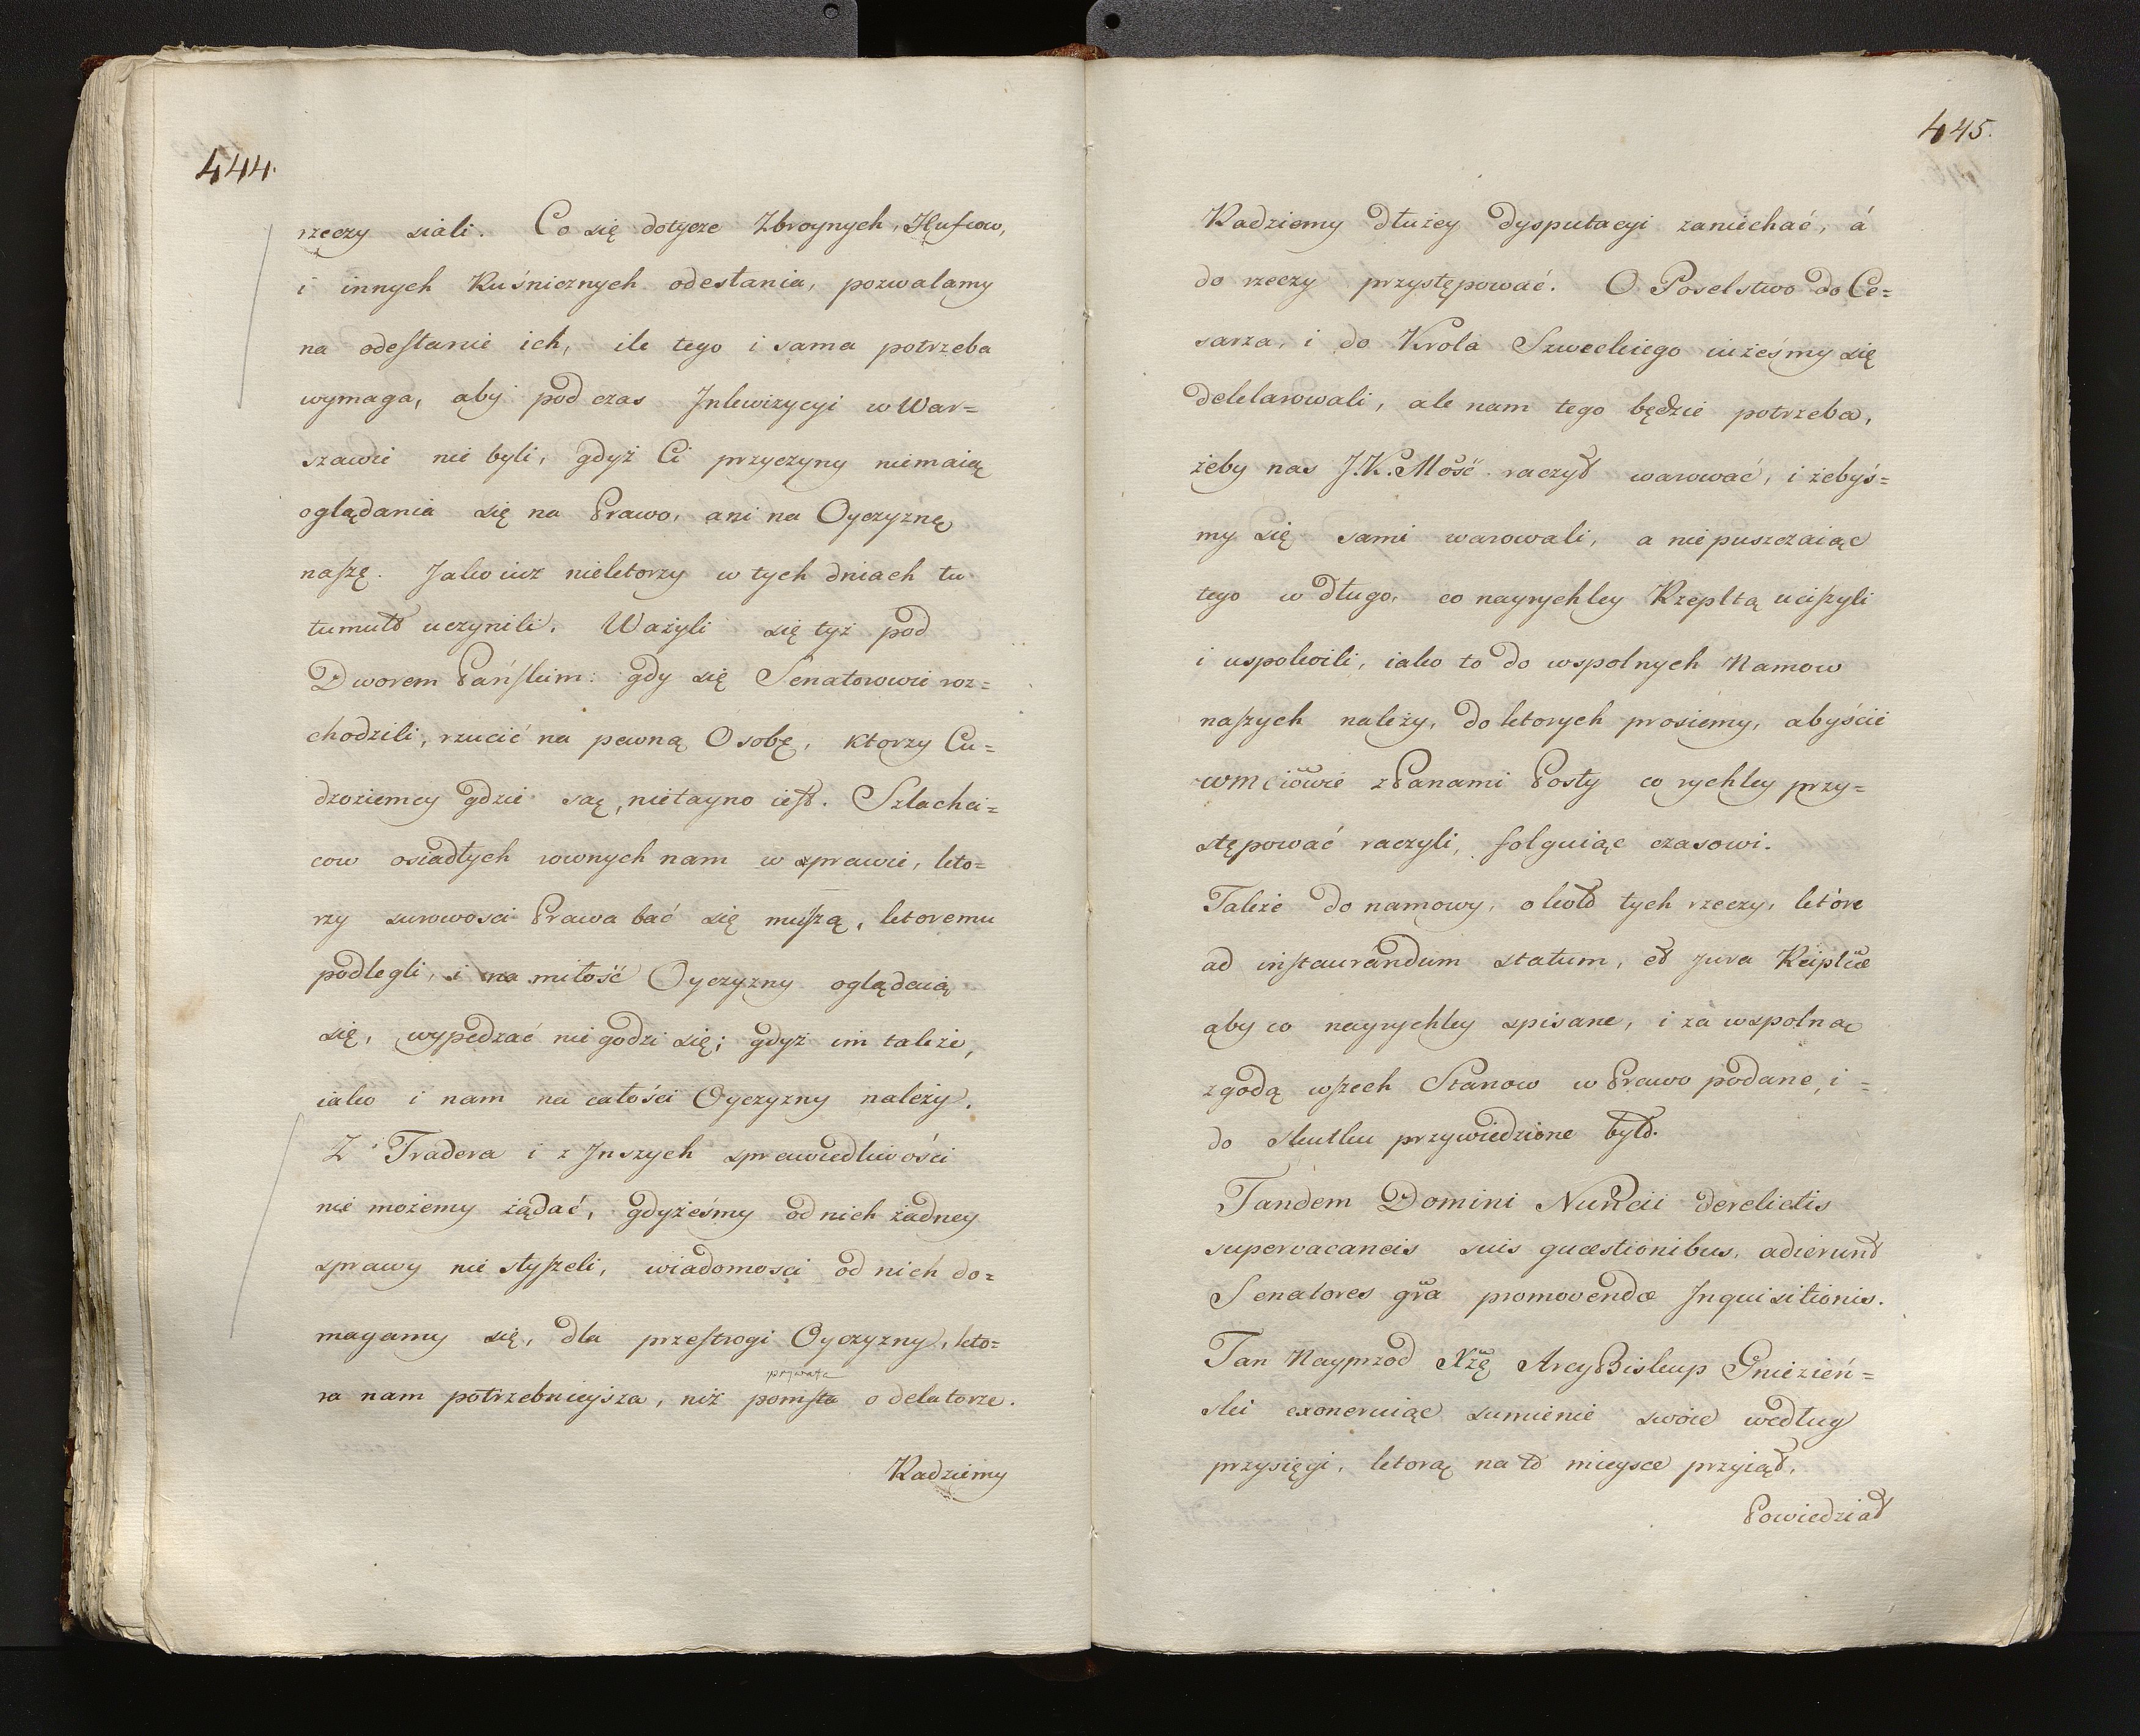 444.
rzeczy siali. Co się dotycze Zbroynych, Hufcow,
i innych Ruśnicznych odesłania, pozwalamy
na odesłanie ich, ile tego i sama potrzeba
wymaga, aby pod czas Inkwizycyi w War=
szawie nie byli, gdyż Ci przyczyny niemaią
oglądania się na Prawo, ani na Oyczyznę
naszę. Jako iuż niektorzy w tych dniach tu
tumult uczynili. Ważyli się tyż pod
Dworem Pańskim: gdy się Senatorowie roz=
chodzili, rzucić na pewną Osobę, ktorzy Cu=
dzoziemcy gdzie są, nietayno iest. Szlachci=
cow osiadłych rownych nam w sprawie, kto=
rzy surowosci Prawa bać się muszą, ktoremu
podlegli, i na miłość Oyczyzny oglądaią
się, wypędzać nie godzi się; gdyż im także,
iako i nam na całości Oyczyzny należy.
Z Tradera i z Inszych sprawiedliwości
nie możemy żądać, gdyżeśmy od nich żadney
sprawy nie słyszeli, wiadomosci od nich do=
magamy się, dla przestrogi Oyczyzny, kto=
prywata
ra nam potrzebnieysza, niż pomsta o delatorze.
Radziemy
445.
Radziemy dłużey dysputacyi zaniechać, á
do rzeczy przystępować. O Poselstwo do Ce=
sarza, i do Krola Szweckiego iużeśmy się
deklarowali, ale nam tego będzie potrzeba,
żeby nas J.K.Mość raczył warować, i żebyś=
my się sami warowali, a nie puszczaiąc
tego w długo, co nayrychley Rzepltą uciszyli
i uspokoili, iako to do wspolnych Namow
naszych należy, do ktorych prosiemy, abyście
wmciowie z Panami Posły co rychley przy=
stępować raczyli, folguiąc czasowi.
Także do namowy, około tych rzeczy, które
ad instaurandum statum, et jura Reiplcae
aby co nayrychley spisane, i za wspolną
zgodą wszech Stanow w Prawo podane, i =
do skutku przywiedzione było.
Tandem Domini Nuncii derelictis
supervacaneis suis quaestionibus, adierunt
Senatores gra promovendae Inquisitionis.
Tan Nayprzod Xżę ArcyBiskup Gnieźień=
ski exoneruiąc sumienie swoie według
przysięgi, ktorą na to mieysce przyiął,
Powiedział